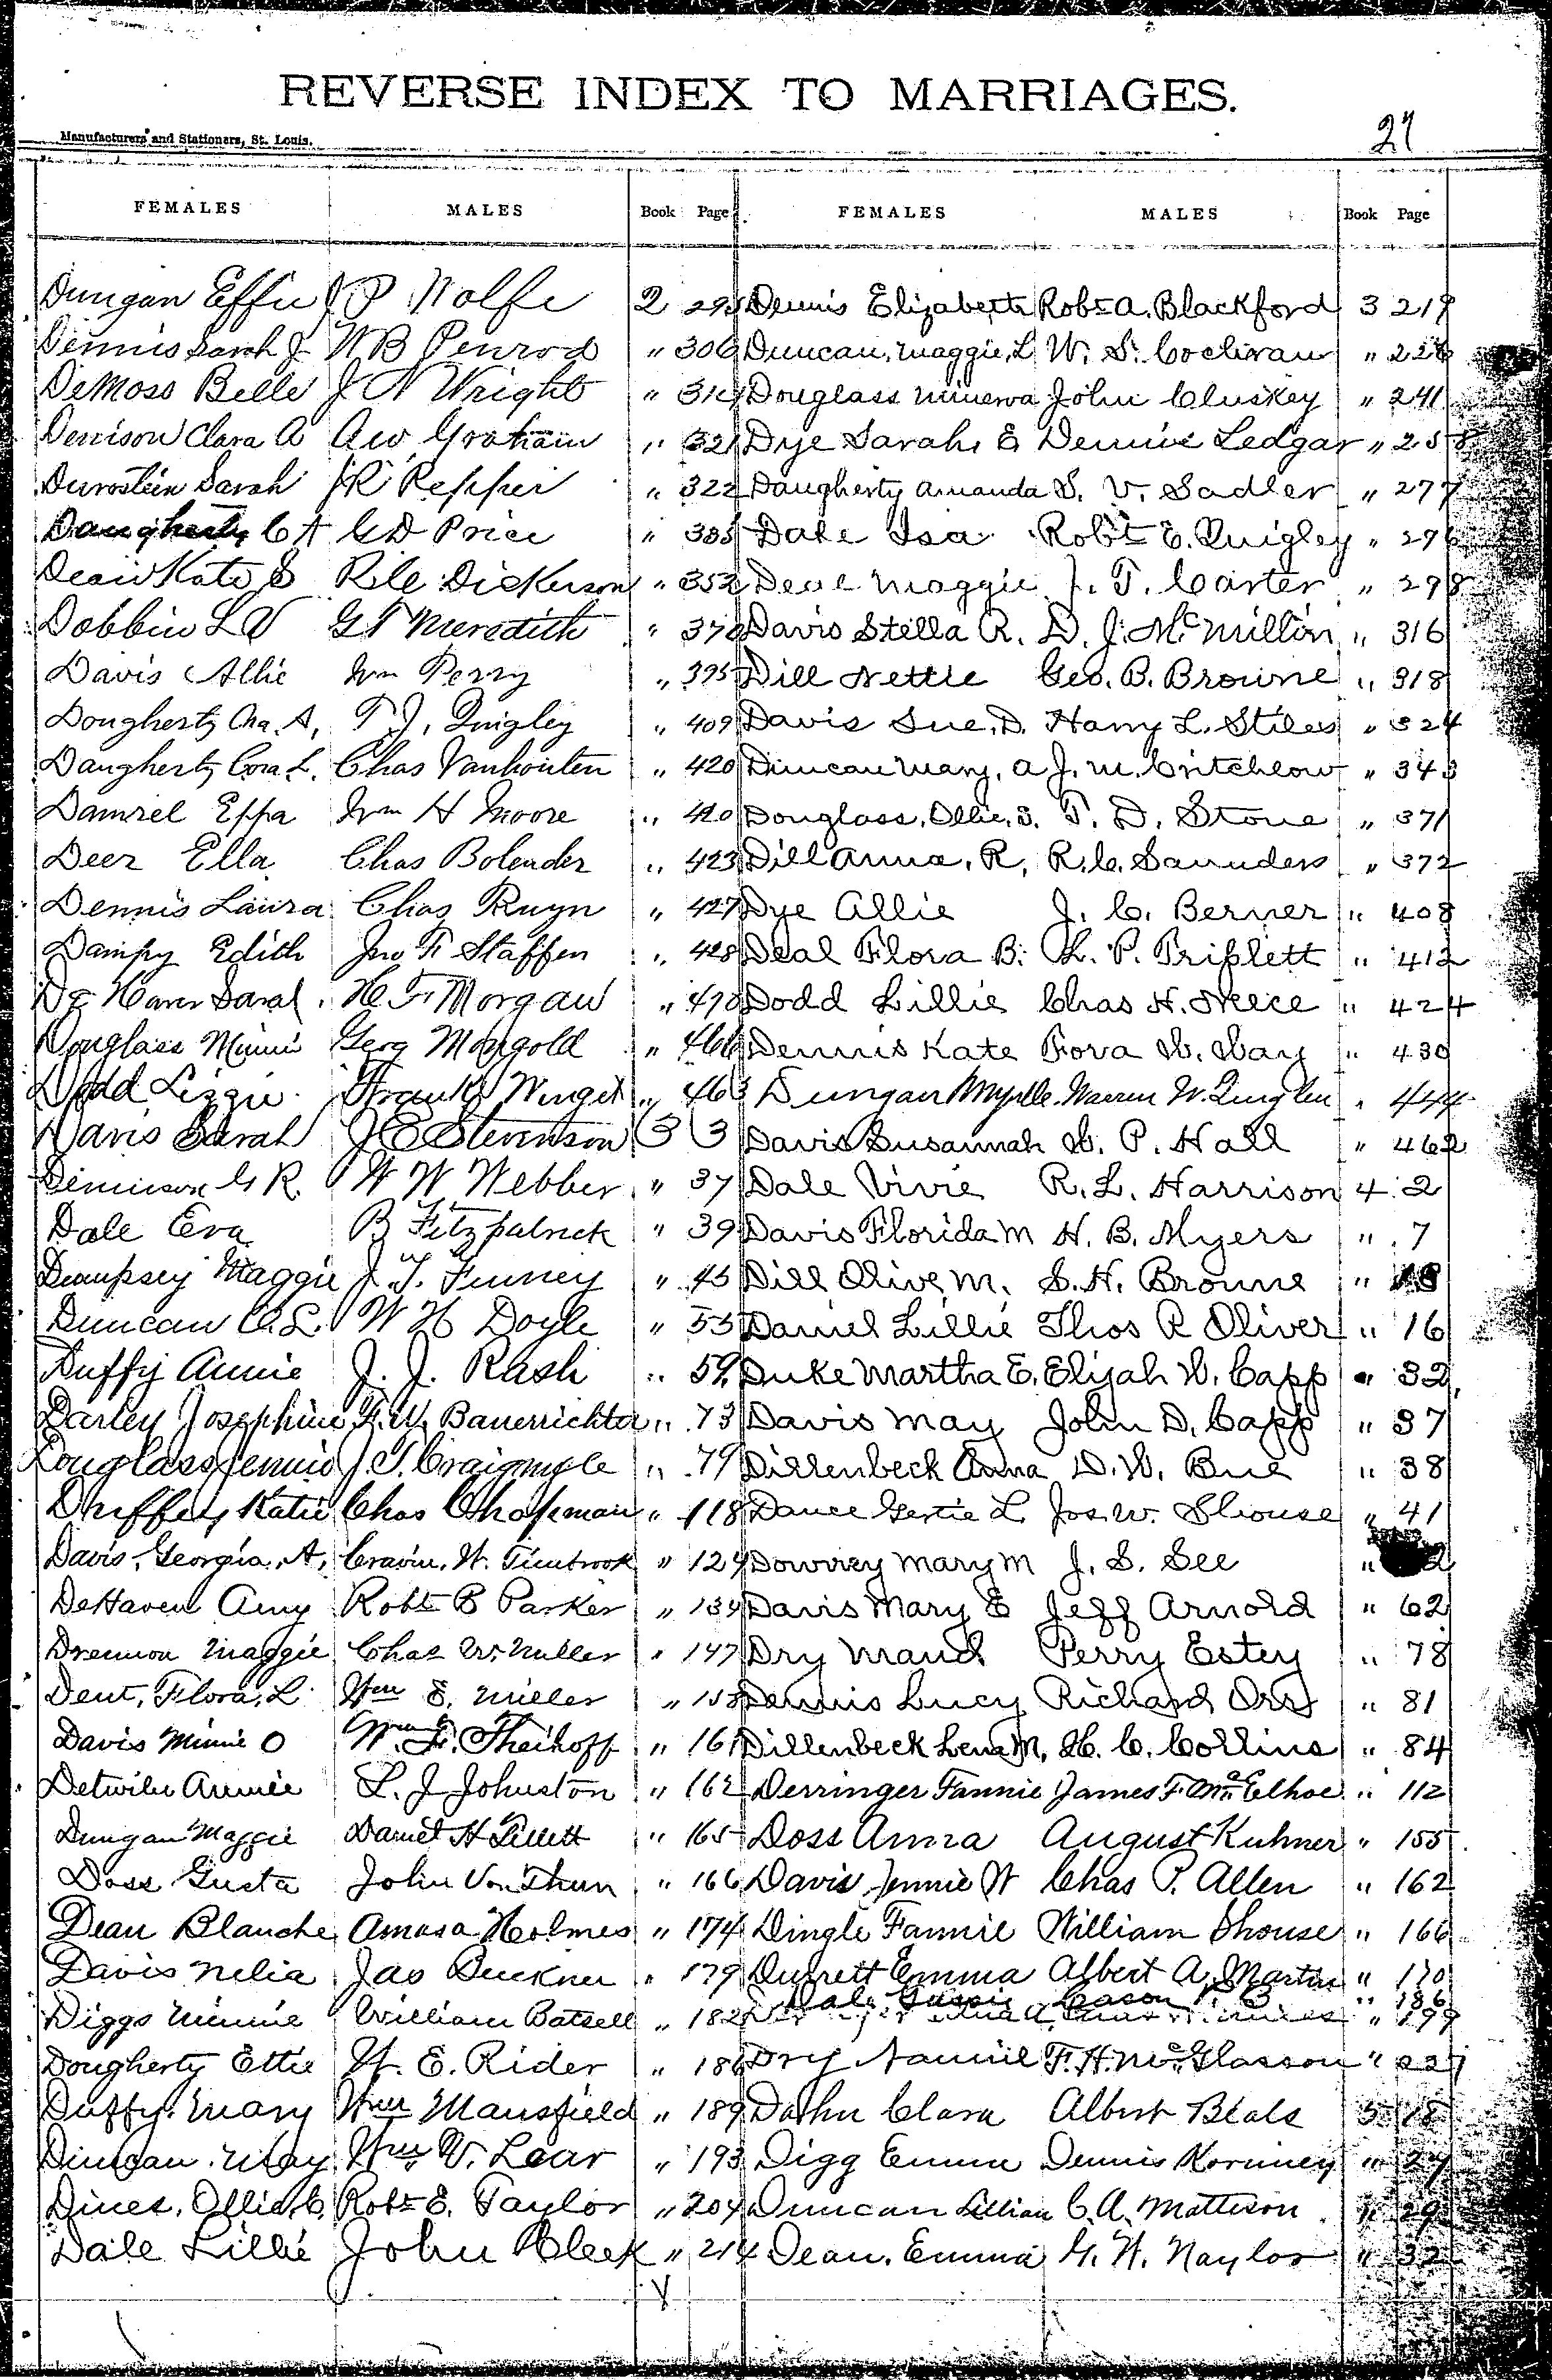 REVERSE INDEX TO MARRIAGES.
27
Manufacturers and Stationers, St. Louis.
FEMALES MALES Book Page FEMALES MALES Book Page
Dungan Effie J P Wolfe 2 295
Dennis Sarah J. W B Penrod " 306
DeMoss Belle J N Wright " 314
Denison Clara A A W Graham " 321
Durostein Sarah J R Pepper " 322
Daugherty C A G D Price " 335
Dean Kate S R Lee Dickerson " 352
Dobbin L V G T Meredith " 370
Davis Allie Wm Perry " 395
Dougherty Cha. A, T. J. Quigley " 409
Daugherty Cora L. Chas Vanhouten " 420
Damrel Eppa Wm H Moore " 420
Deer Ella Chas Bolender " 423
Dennis Laura Chas Ruyn " 427
Dampy Edith Jno F Staffen " 428
De Haven Sarah H. F. Morgan " 470
Douglass Minnie Gerg Mangold " 466
Dodd Lizzie Frank Winget " 463
Davis Sarah J E Stevenson 3 3
Dennison G R. W W Webber " 37
Dale Eva B Fitzpatrick " 39
Deampsey Maggie J. T. Finney " 45
Duncan C. L. W H Doyle " 55
Duffy Annie J. J. Rash " 59
Darley Josephine F. W. Bauerrichter " 73
Douglass Jennie J. T. Craigmyle " 79
Duffey Katie Chas Chapman " 118
Davis, Georgia, A, Cravin, W. Timbrook " 124
DeHaven Amy Robt B Parker " 134
Drennon Maggie Chas W. Miller " 147
Dent, Flora, L. Wm E. Miller " 158
Davis Minnie O Wm F. Theihoff " 161
Detwiler Annie L. J Johnston " 162
Dungan Maggie Daniel H Lillett " 165
Doss Gusta John Von Thun " 166
Dean Blanche Amasa Holmes " 174
Davis Nelia Jas Buckner " 179
Diggs Minnie William Batsell " 182
Dougherty Ettie W. E. Rider " 186
Duffy, Mary Wm Mansfield " 189
Duncan, May Wm V. Lear " 193
Dines, Ollie, C. Robt E. Taylor " 204
Dale Lillie John Cleek " 214
Dennis Elizabeth Robt A. Blackford 3 219
Duncan, Maggie, L W. S. Cochran " 226
Douglass Minerva John Cluskey " 241
Dye Sarah, E Dennie Ledgar " 258
Daugherty Amanda S. V. Sadler " 277
Dale Isa Robt E. Quigley " 296
Deal Maggie J. T. Carter " 298
Davis Stella R. D. J. McMillin " 316
Dill Nettie Geo. B. Browne " 318
Davis Sue, D. Harry L. Stiles " 324
Duncan Mary, A J. M. Critchlow " 343
Douglass, Ollie, S. T. D. Stone " 371
Dill Anna, R, R. C. Saunders " 372
Dye Allie J. C. Berner " 408
Deal Flora B. L. P. Triplett " 412
Dodd Lillie Chas H. Neece " 424
Dennis Kate Fora D. Day " 430
Dungan Myrtle Warren W. Quigley " 444
Davis Susannah D. P. Hall " 462
Dale Vivie R. L. Harrison 4 2
Davis Florida M H. B. Myers " 7
Dill Olive, M. S. H. Browne "
Daniel Lillie Thos R Oliver " 16
Duke Martha E. Elijah D. Capp " 32
Davis May John D. Capp " 37
Dillenbeck Anna D. W. Bue " 38
Dance Gertie L Jos. W. Shouse " 41
Dowrey Mary M J. S. See "
Davis Mary E Jeff Arnold " 62
Dry Maud Perry Estey " 78
Dennis Lucy Richard Orr " 81
Dillenbeck Lena M, H. C. Collins " 84
Derringer Fannie James F. McElhoe " 112
Doss Anna August Kuhner " 155
Davis Jennie W Chas P. Allen " 162
Dingle Fannie William Shouse " 166
Durrett Emma Albert A. Martin " 170
Dale Gussie Cason " 186
" 199
Dry Nannie F. H. McGlasson " 227
Dahn Clara Albert Beals 5 18
Digg Emma Dennis Kormney " 27
Duncan Lillian C. A. Mattison " 29
Dean, Emma G. W. Naylor " 32